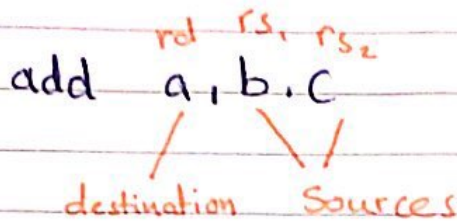 rd rs₁ rs₂
add a, b, c
destination Sources